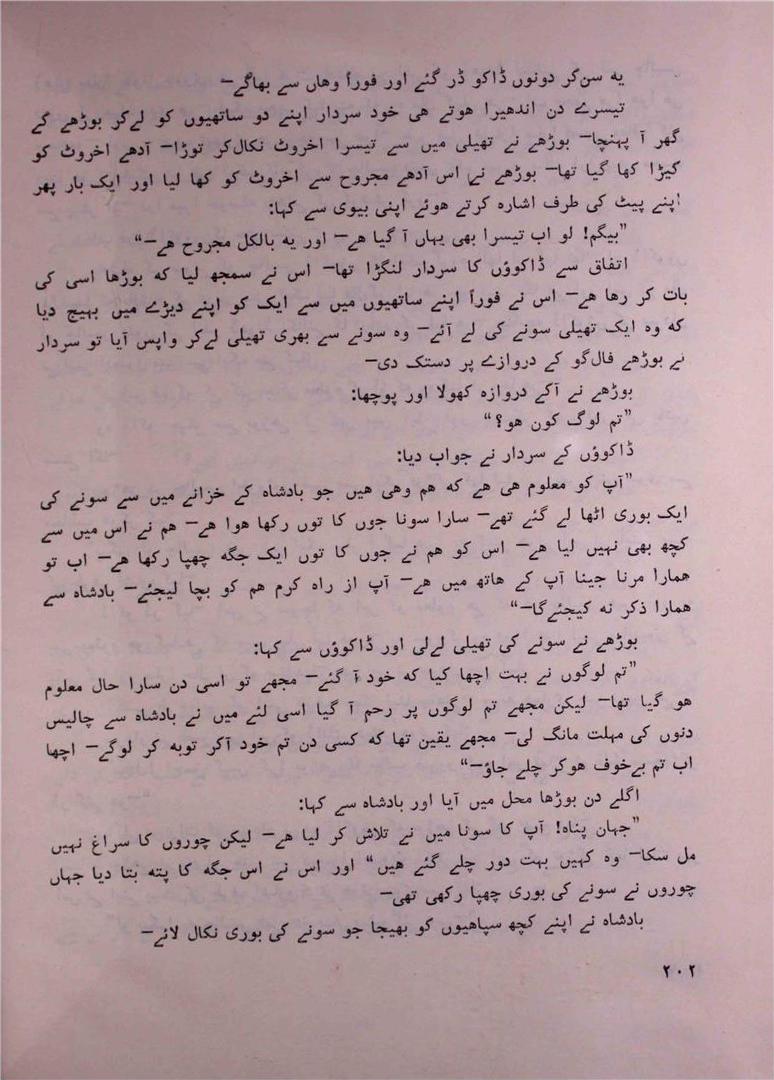 یه سن‌کر دونوں ڈاکو ڈر گئے اور فوراً وهاں سے بھاگے—
تیسرے دن اندهیرا هوتے هی خود سردار اپنے دو ساتھیوں کو لے‌کر بوڑھے کے
گھر آ پہنچا— بوڑھے نے تھیلی میں سے تیسرا اخروٹ نکال‌کر توڑا— آدھے اخروٹ کو
کیڑا کھا گیا تھا— بوڑھے نے اس آدھے مجروح سے اخروٹ کو کھا لیا اور ایک بار پھر
اپنے پیٹ کی طرف اشاره کرتے هوئے اپنی بیوی سے کہا:
”بیگم! لو اب تیسرا بھی یہاں آ گیا هے— اور یه بالکل مجروح هے—“
اتفاق سے ڈاکوؤں کا سردار لنگڑا تھا— اس نے سمجھ لیا که بوڑھا اسی کی
بات کر رها هے— اس نے فوراً اپنے ساتھیوں میں سے ایک کو اپنے ڈیڑے میں بھیج دیا
که وه ایک تھیلی سونے کی لے آئے— وه سونے سے بھری تھیلی لے‌کر واپس آیا تو سردار
نے بوڑھے فال‌گو کے دروازے پر دستک دی—
بوڑھے نے آکے دروازه کھولا اور پوچھا:
”تم لوگ کون هو؟“
ڈاکوؤں کے سردار نے جواب دیا:
”آپ کو معلوم هی هے که هم وهی هیں جو بادشاه کے خزانے میں سے سونے کی
ایک بوری اٹھا لے گئے تھے— سارا سونا جوں کا توں رکھا هوا هے— هم نے اس میں سے
کچھ بھی نہیں لیا هے— اس کو هم نے جوں کا توں ایک جگه چھپا رکھا هے— اب تو
همارا مرنا جینا آپ کے هاتھ میں هے— آپ از راه کرم هم کو بچا لیجئے— بادشاه سے
همارا ذکر نه کیجئے‌گا—“
بوڑھے نے سونے کی تھیلی لے‌لی اور ڈاکوؤں سے کہا:
”تم لوگوں نے بہت اچھا کیا که خود آ گئے— مجھے تو اسی دن سارا حال معلوم
هو گیا تھا— لیکن مجھے تم لوگوں پر رحم آ گیا اسی لئے میں نے بادشاه سے چالیس
دنوں کی مہلت مانگ لی— مجھے یقین تھا که کسی دن تم خود آکر توبه کر لوگے— اچھا
اب تم بے‌خوف هوکر چلے جاؤ—“
اگلے دن بوڑھا محل میں آیا اور بادشاه سے کہا:
”جہان پناه! آپ کا سونا میں نے تلاش کر لیا هے— لیکن چوروں کا سراغ نہیں
مل سکا— وه کہیں بہت دور چلے گئے هیں“ اور اس نے اس جگه کا پته بتا دیا جہاں
چوروں نے سونے کی بوری چھپا رکھی تھی—
بادشاه نے اپنے کچھ سپاهیوں کو بھیجا جو سونے کی بوری نکال لائے—
۲۰۲